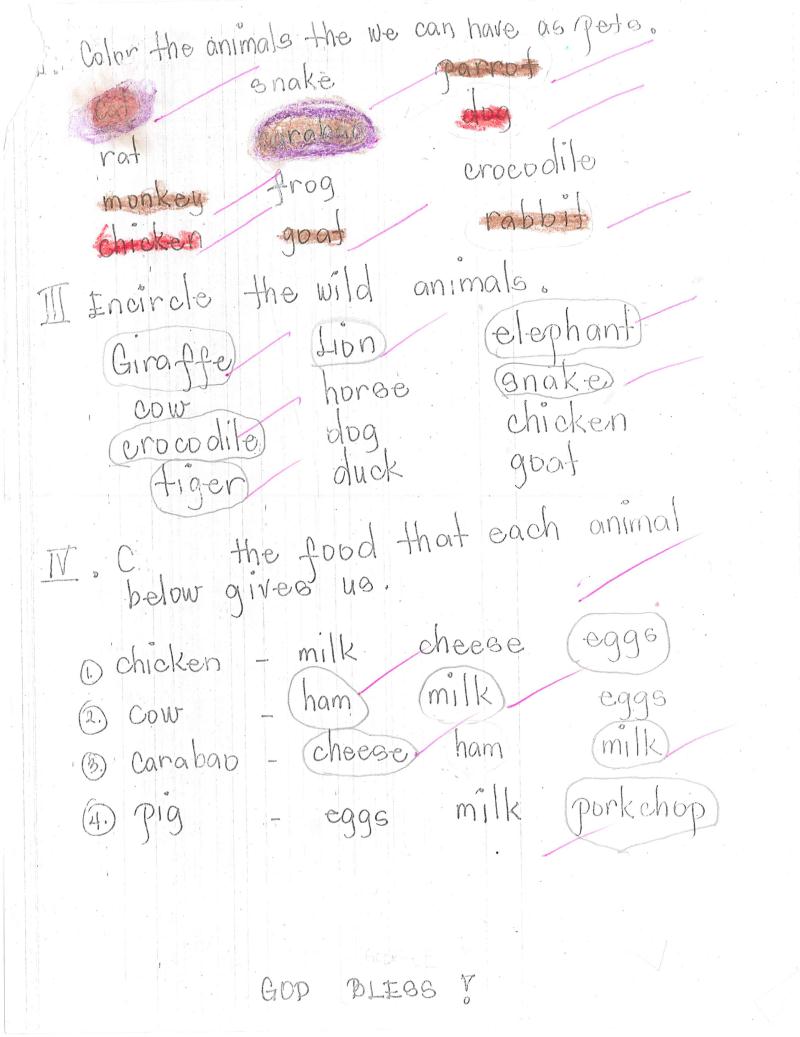 . Color the animals the we can have as pets.
cat snake parrot
rat carabao dog
monkey frog crocodile
chicken goat rabbit
III Encircle the wild animals.
Giraffe Lion elephant
cow horse snake
crocodile dog chicken
tiger duck goat
IV. C the food that each animal
below gives us.
1. chicken - milk cheese eggs
2. cow - ham milk eggs
3. carabao - cheese ham milk
4. pig - eggs milk porkchop
GOD BLESS !